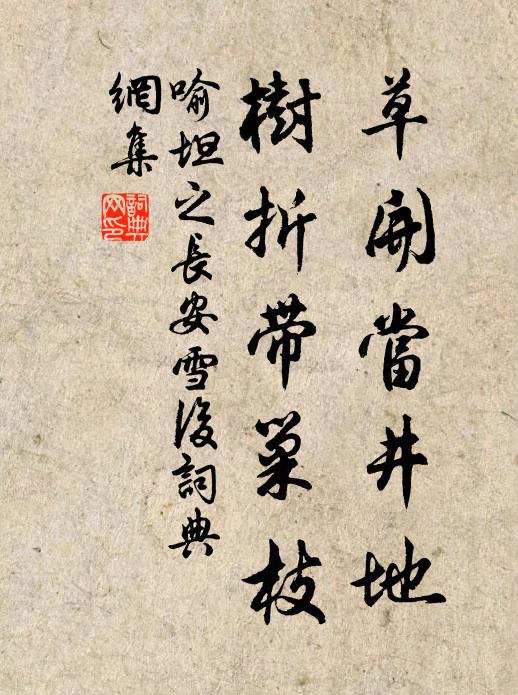 草開當井地
樹折帶巢枝
喻坦之長安雪後詞典
網集
詞典
網印